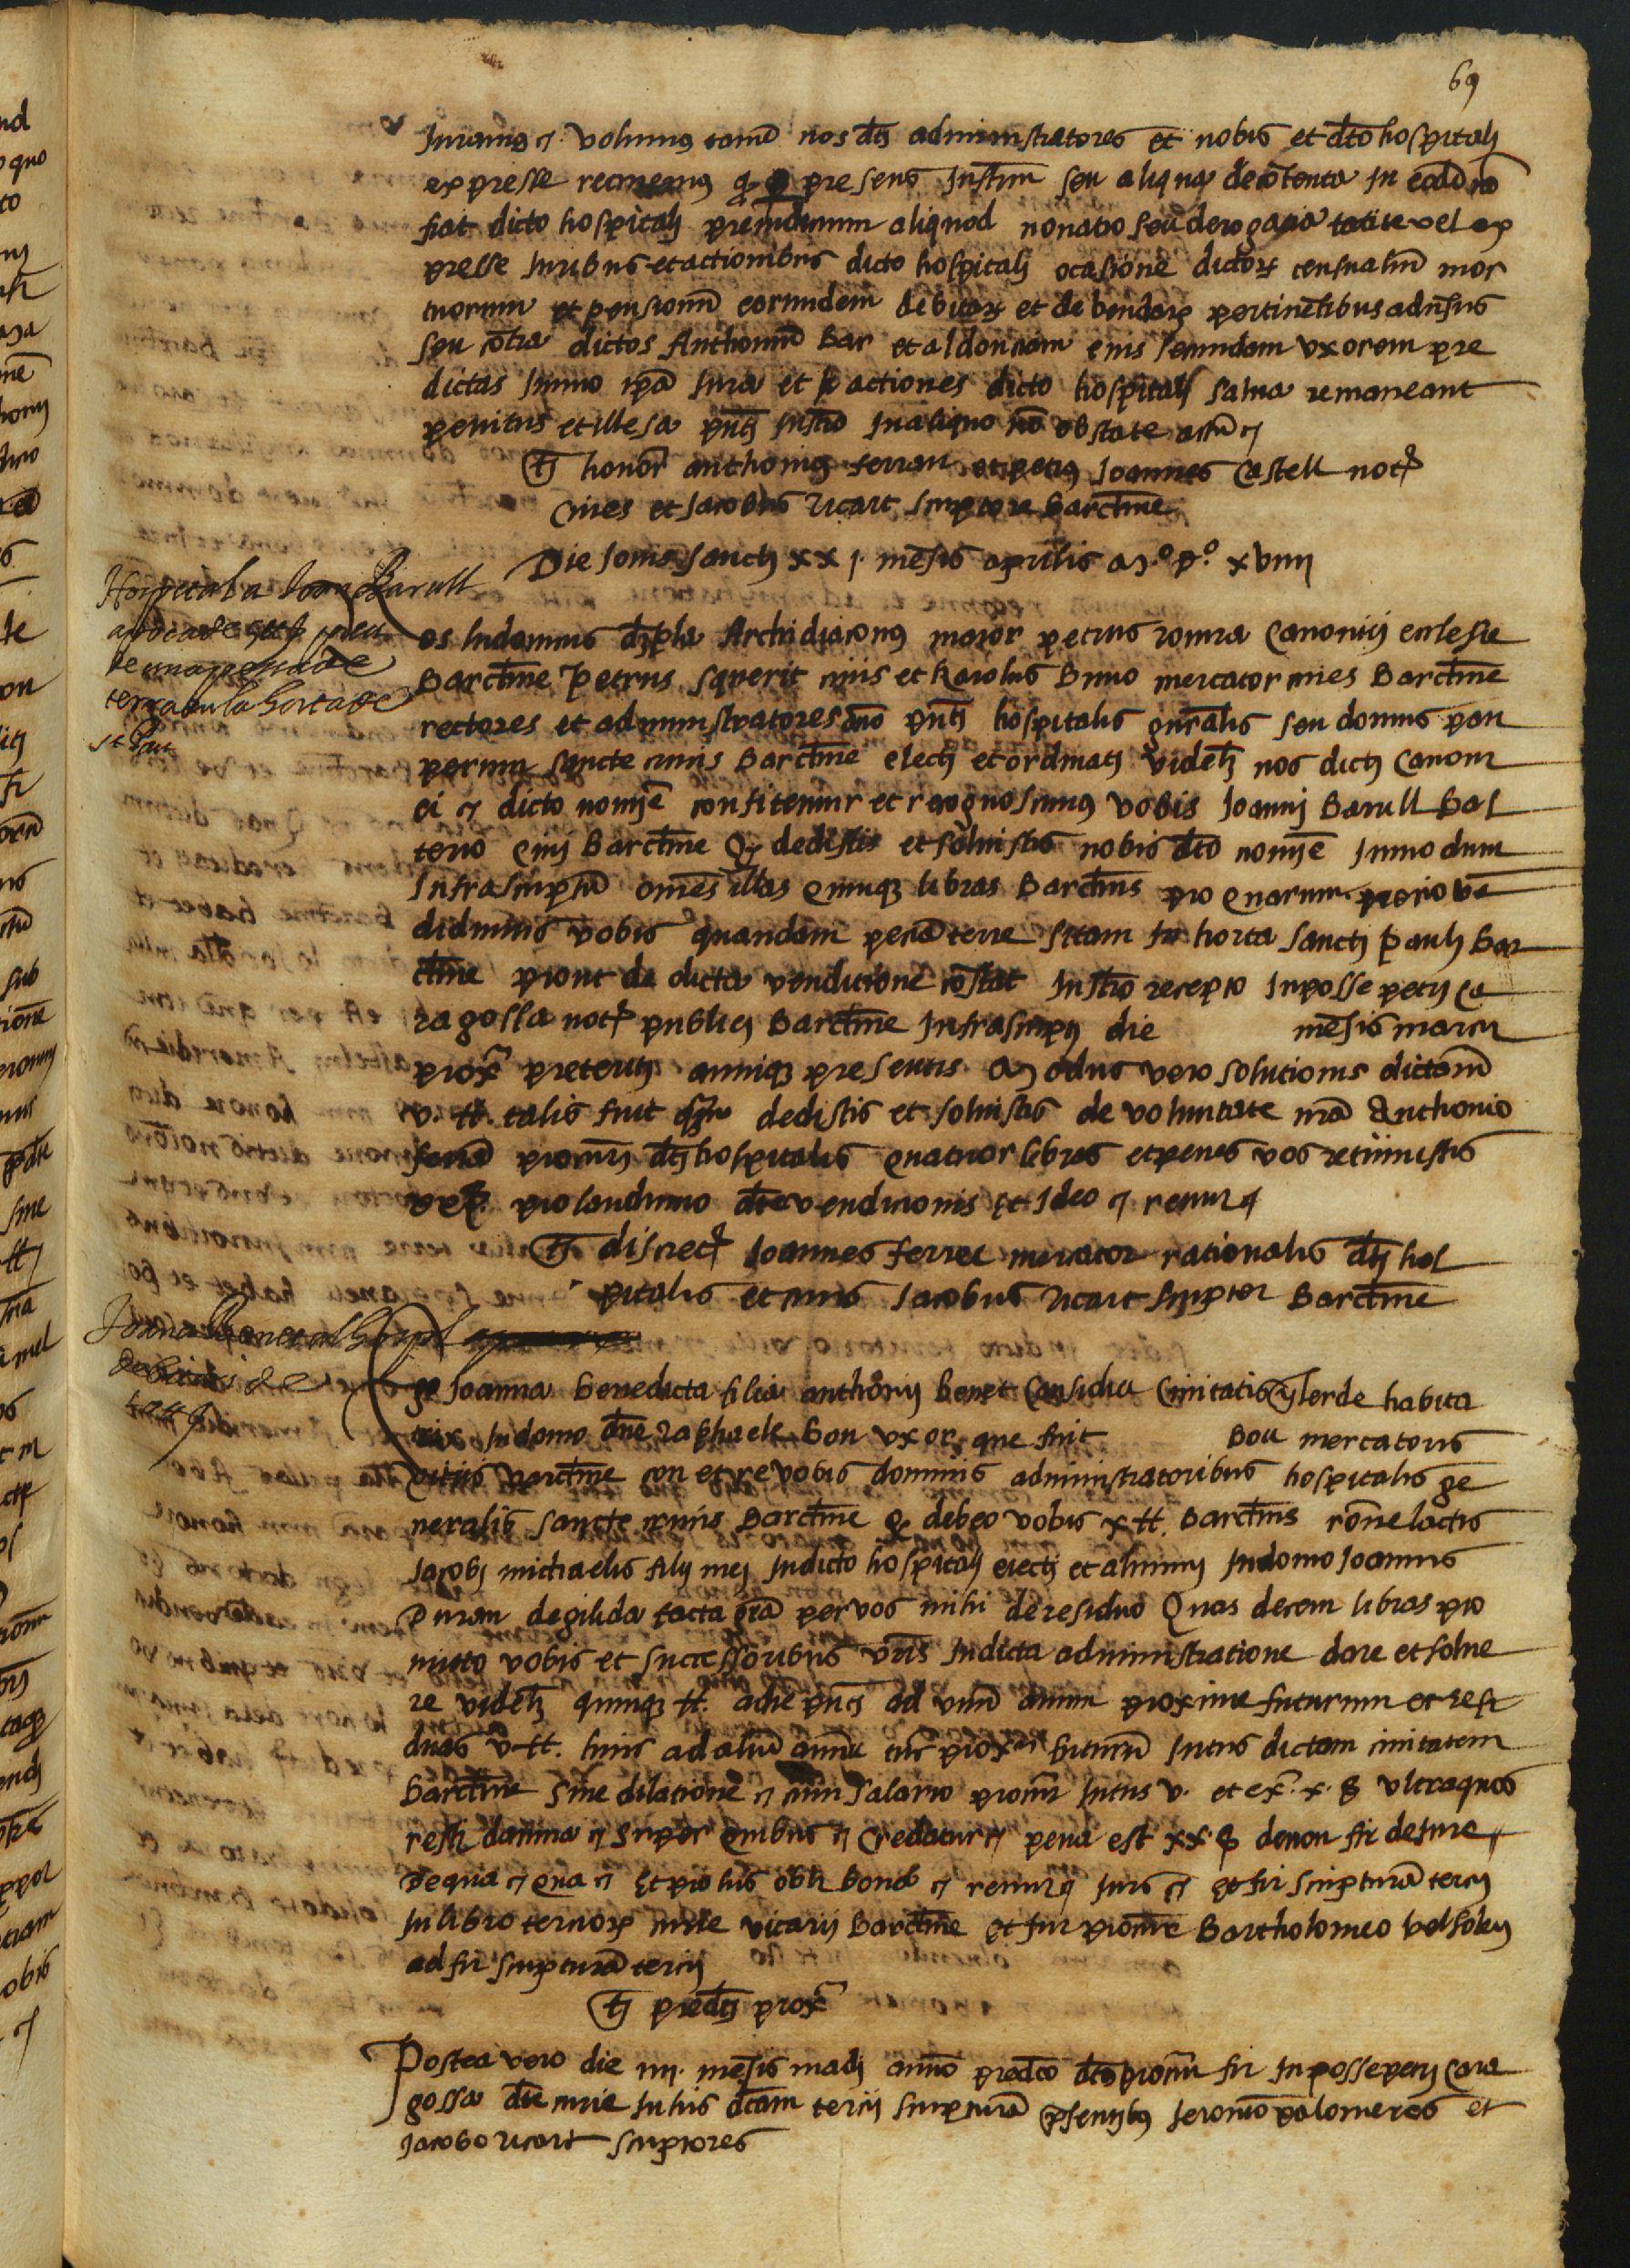 69
Iuramus ⁊ volumus tamē nos dcīs administratores et nobis et dcto hospitalj
expresse retinemus q presens Instm̄ seu aliqua de cōtentis in eodē nō
fiat dicto hospitalj preiudicium aliquod nouatio seu derogatio tacite vel ex
presse Iuribus et actionibus dicto hospitalj ocasione dictorꝝ censualiū mor
tuorum et pensionū eorumdem debitorꝝ et debendarꝝ pertinētibus aduersus
seu cōtra dictos Anthoniū Bar et aldonciam eius secundam vxorem pre
dictas Immo ipā Iura et actiones dicto hospitalj salua remaneant
penitus et illesa pn̄tj Instro In aliquo nō obstāte actū ⁊
Tꝭ honor anthonius ferran et petrus Joannes Castell notꝰ
Ciues et Jacobus Ricart scriptore barcn̄me
Die Jouis sanctj xxj. mēsis aprilis a M.º D.º xviiij
Hospital a Joan Barull
apoca de preu
de una pessa de
terra a la horta de
st Pau
os ludouicus Archidiaconus maior petrus roma Canonicj ecclesie
Barcn̄me Petrus Squerit ciuis et Karolus Bruno mercator ciues Barcn̄me
rectores et administratores āno pn̄tj hospitalis gn̄ralis seu domus pau
perum sancte crucis Barcn̄me electj et ordinatj videlꝫ nos dictj Canoni
ci ⁊ dicto nomīe confitemur et recognoscimus vobis Joannj Barull bas
terio Ciuj Barcn̄me Q dedistis et soluistis nobis dcto nomīe In modum
Infrascriptū omēs illas quinqꝫ libras Barcn̄ms pro quarum precio vē
didimus vobis quandam peciā terre sitam In horta sanctj paulj Bar
cn̄me prout de dicta venditione cōstat Instro recepto In posse petrj Ca
ragossa notꝰ publicj Barcn̄me Infrascriptj die mēsis marcij
proxᵉ preteritj annique presentis Modus vero solutionis dictarū
v. ℔. talis fuit dedistis et soluistis de voluntate nrā Anthonio
ferrā procur̄ dcīj hospitalis quatuor libras et penes vos retinuistis
pro laudimio dicte venditionis Et Ideo ⁊ renun ⁊
Tꝭ discretꝰ Joannes ferrer mercator rationalis dctj hos
pitalis et ciuis Jacobus Ricart scriptor Barcn̄me
Joana Beneta al hospl
debitori de
go Joanna benedicta filia anthonij benet Causidici Ciuitatis Ilerde habita
trix In domo dn̄e raphaele bou vxor que fuit Bou mercatoris
Ciuis Barcn̄me con et re vobis dominis administratoribus hospitalis ge
neralis sancte crucis Barcn̄me q debeo vobis x ℔. Barcn̄ms rōne lactis
Jacobj michaelis filij mej In dicto hospitalj eiectj et alimtj In domo Joannis
Duran de gilida facta grā per vos mihi de residuo Quas decem libras pro
mitto vobis et successoribus vr̄is In dicta administratione dare et solue
re videlꝫ quinqꝫ ℔. a die pn̄tj ad vnū annū proxime futurum et resi
duas v ℔. hinc ad aliū annū tūc proxᵉ futurū Intus dictam ciuitatem
Barcn̄me Sine dilatione ⁊ cum salario procur̄ Intus v. et exᵃ. x. ß vltra quos
restj damna ⁊ super quibus ⁊ Credatur ⁊ pena est xx. ß de non fir de Iure
De quia ⁊ qua ⁊ Et pro his oblj bona ⁊ renun ⁊ Iuris ⁊ et fir scripturā tercij
In libro terciorꝝ curie vicarij Barcn̄me Et fir procur̄e Bartholomeo bolsoles
ad fir scripturā tercij
Tꝭ predctj proxᵉ
Postea vero die iiij. mēsis madij anno predcto dcta procur̄ fir In posse petrj cara
gossa dcte curie In his dctam tercij scripturā psentibꝰ Jeronimo palomeres et
Jacobo ricart scriptores